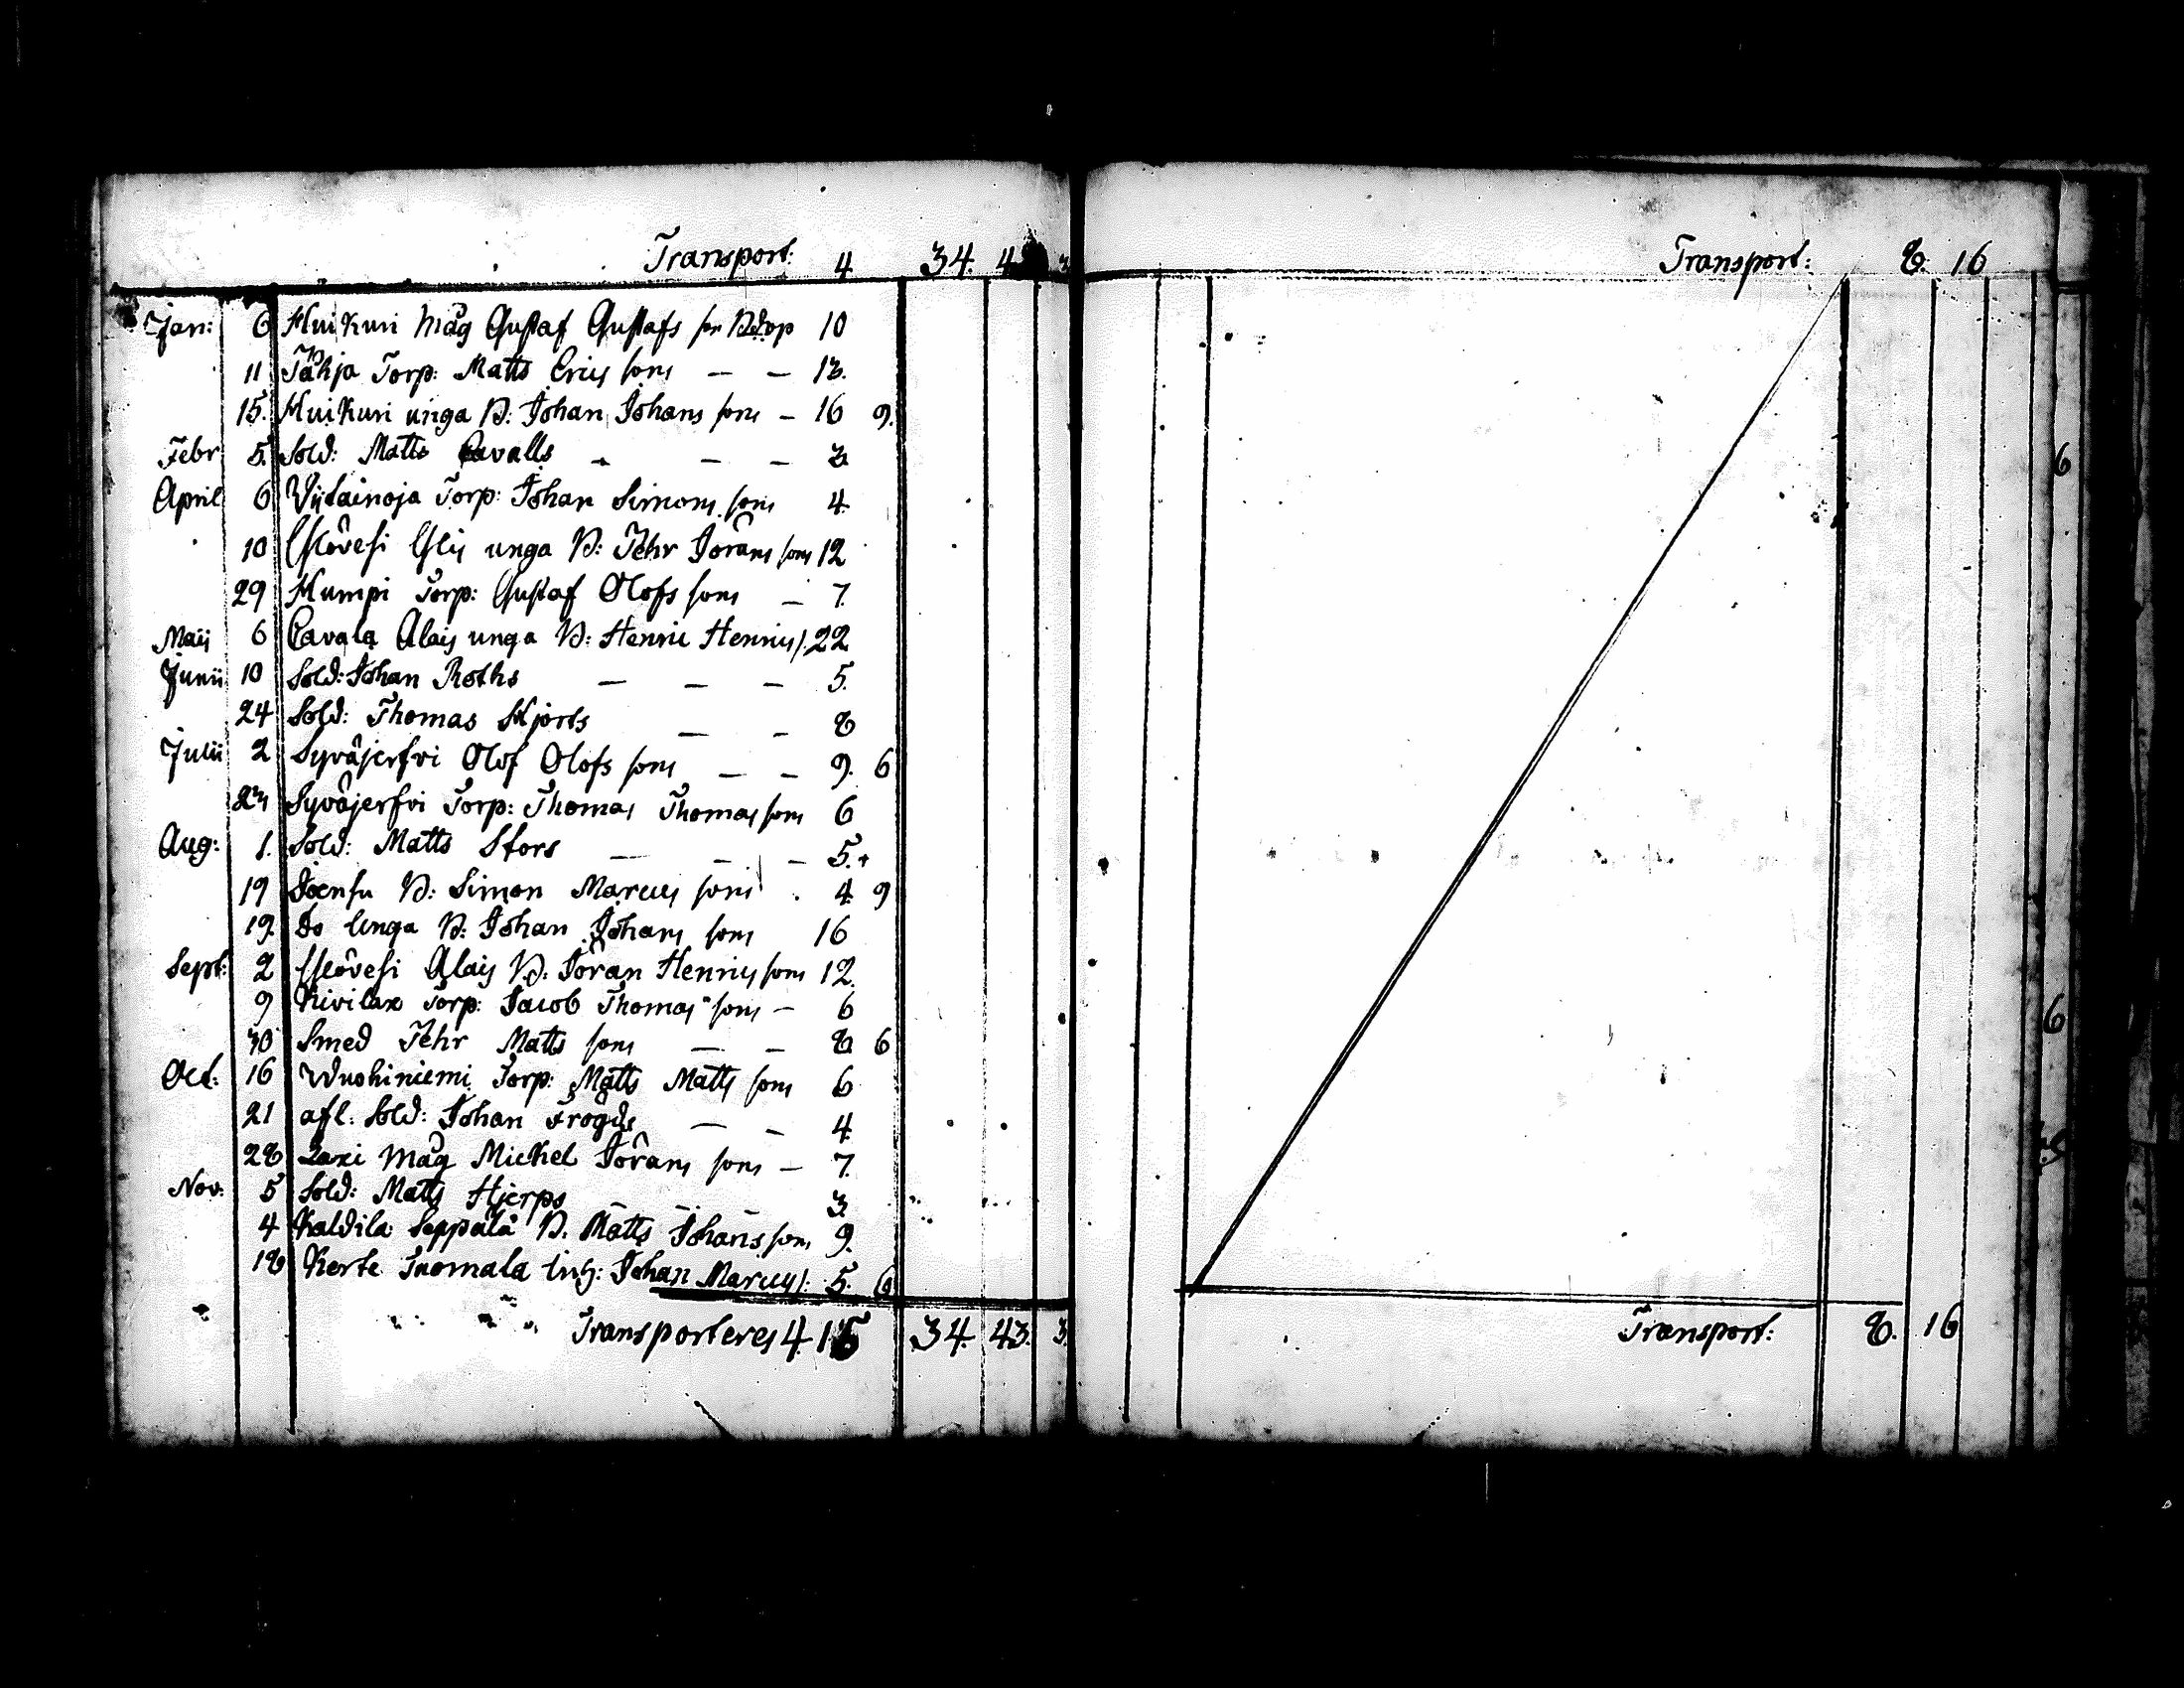 Transport: 4 34. 4 3
Jan: 6 Huikuri Måg Gustaf Gustafs son 10
11 Torp: Matts Erics sons — — 13.
15. Huikuri unga B: Johan Johans sons — 16 9.
Febr 5. Sold: Matts Cavalls — — 3
April 6 Wijtainoja Torp: Johan Simons sons 4
10 unga B: Pehr Jörans sons 12
29 Kumpi Torp: Gustaf Olofs sons — 7.
Maij 6 Cavala Alais unga B: Henric Henrics s. 22
Junii 10 Sold: Johan Roths — — — 5.
24 Sold: Thomas Hjorts — — 8
Julii 2 Syväjerfvi Olof Olofs sons — — 9. 6
Syväjerfvi Torp: Thomas Thomas sons 6
Aug: 1. Sold: Matts Stors — — — 5.
19 Joensu B: Simon Marcus sons 4 9
19. Do Unga B: Johan Johans sons 16
Sept: 2 Alais B: Jöran Henrics sons 12.
9 Kivilax Torp: Jacob Thomas sons — 6
30 Smed Pehr Matts sons — — 8 6
Oct: 16 Wuohiniemi Torp: Matts Matts sons 6
21 afl: Sold: Johan Frogds — — 4
28 Laxi Måg Mickel Jörans sons — 7.
Nov: 5 Sold: Matts Hjerps — — — 3.
4 Kaldila Seppälä B. Matts Johans sons 9.
18 Kerte Tuomala Johan Marcus s: 5. 6
Transporteres 4. 34. 43. 3.
Transport: 8. 16
6
6
Transport: 8. 16